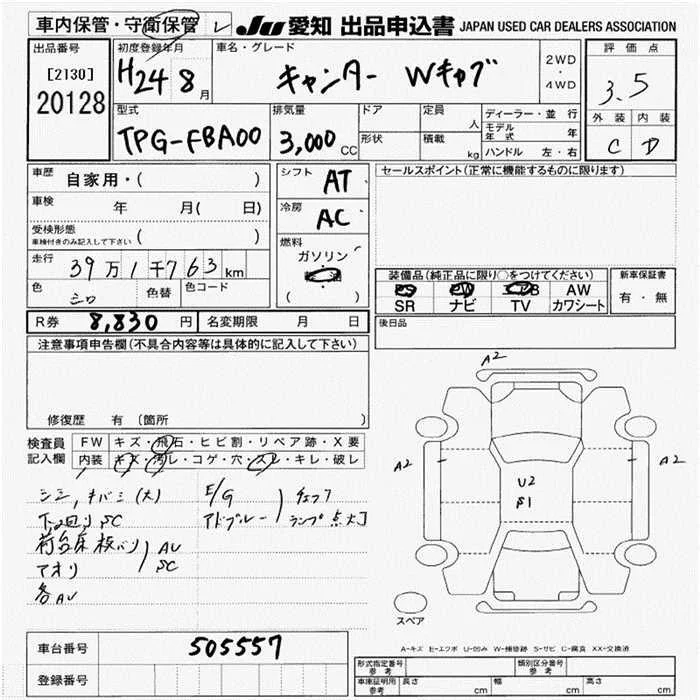 車内保管・守衛保管 レ JU 愛知 出品申込書 JAPAN USED CAR DEALERS ASSOCIATION
出品番号 初度登録年月 車名・グレード 2WD・4WD 評価点
[2130] H24 8月 キャンター Wキャブ 3.5
20128
型式 排気量 ドア 定員 人 ディーラー・並行 外装 内装
TPG-FBA00 3,000cc 形状 積載 kg モデル年式 年 C D
ハンドル 左・右
車歴 自家用・( ) シフト AT セールスポイント(正常に機能するものに限ります)
車検 年 月( 日) 冷房 AC
受検形態 ( )
車検付きのみ記入して下さい
燃料 ガソリン
( )
走行 39万1千763km
装備品(純正品に限り○をつけてください) 新車保証書
色 シロ 色替 色コード
PS PW エアB AW 有・無
SR ナビ TV カワシート
R券 8,830円 名変期限 月 日 後日品
注意事項申告欄(不具合内容等は具体的に記入して下さい)
修復歴 有 (箇所 )
検査員 FW キズ・飛石・ヒビ割・リペア跡・X要
記入欄 内装 キズ・汚レ・コゲ・穴・スレ・キレ・破レ
シミ,キバミ(大) E/G チェック
下回りSC アドブルー ランプ点灯
荷台床板バリ AU
アオリ SC
各AU
A2
A2 A2
U2
S1
スペア
A-キズ E-エクボ U-凹み W-補修跡 S-サビ C-腐食 XX-交換済
車台番号 505557
登録番号
形式指定番号 参考 類別区分番号 参考
車庫証明用 参考 長さ cm 幅 cm 高さ cm